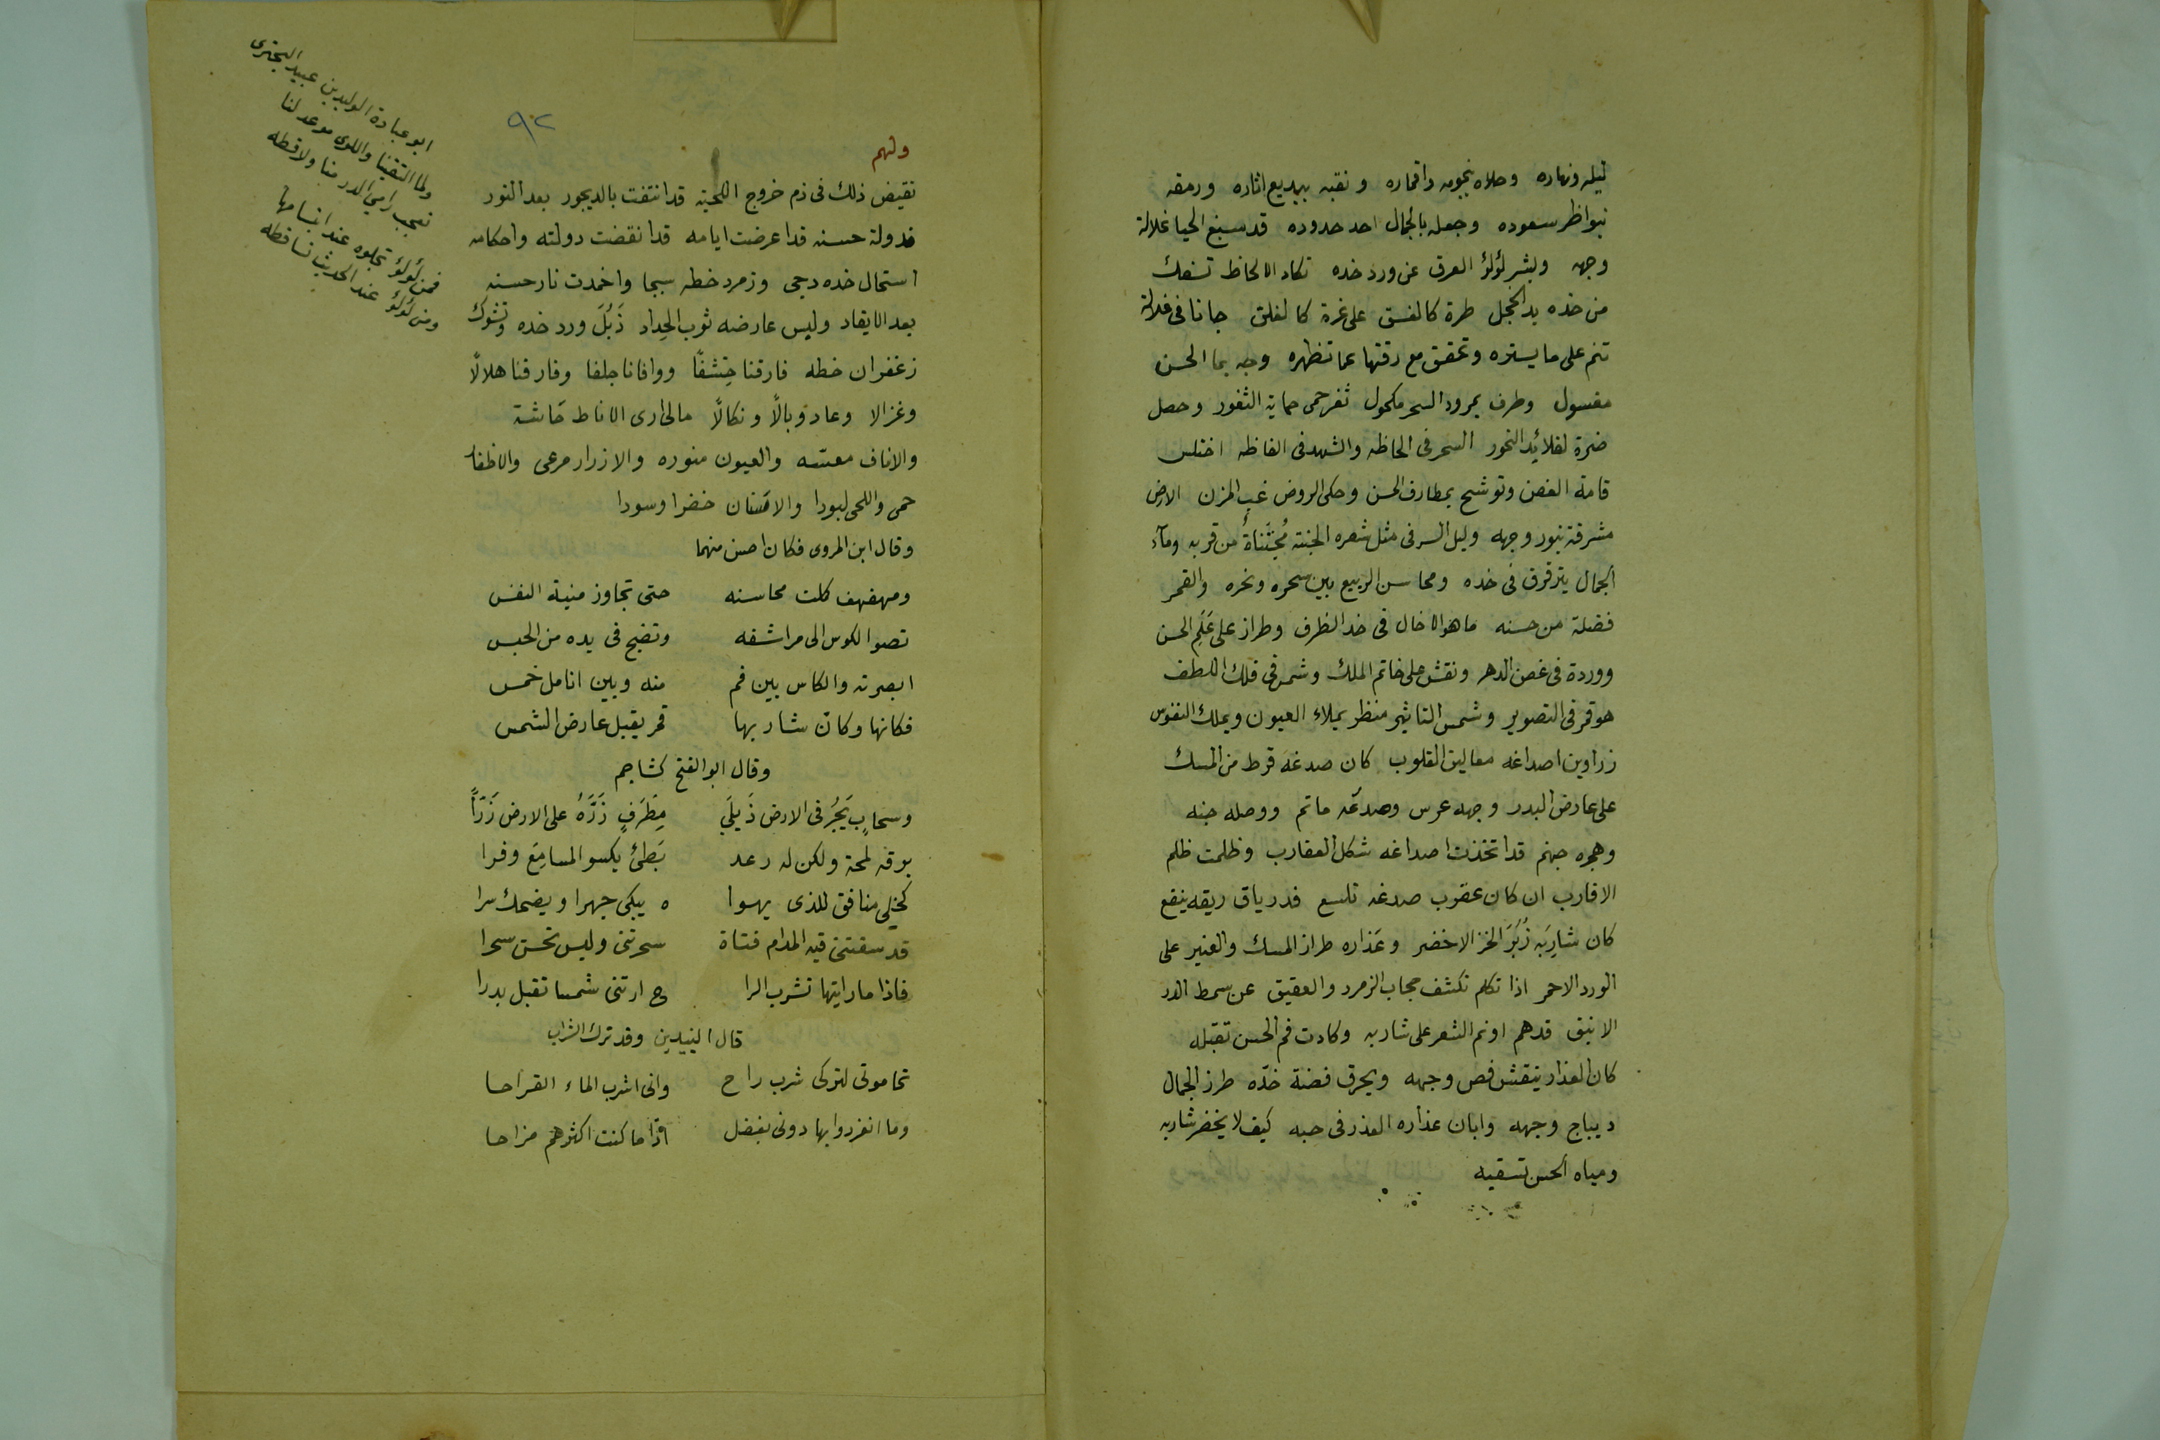 ليله ونهاره وحلاه بنجومه واقماره ونقبه ببديع اثاره ورمقه
بنواظر سعوده وجعله بالجمال احد حدوده قد صبغ الحيا غلالة
وجهه ونشر لؤلؤ العرق عن ورد خده تكاد الالحاظ تسفك
من خده يد الخجل طرة كالغسق على غرة كالفلق جانا فى غلالة
تنم على ما يستره وتحقق مع رقتها عما تظهره وجه بما الحسن
مغسول وطرف بمرود السحر مكحول ثغر حمى حماية الثغور وحصل
ضرة لقلائد النحور السحر فى الحاظه والشهد فى الفاظه اختلس
قامة الغصن وتوشح بمطارف الحسن وحكى الروض غب المزن الارض
مشرقة بنور وجهه وليل السر فى مثل شعره الجنة مُجتَناةٌ من قربه وماء
الجمال يترقرق فى خده ومحاسن الربيع بين سحره ونحره والقمر
فضلة من حسنه ما هو الا خال فى خد الظرف وطراز على عَلَم الحسن
ووردة فى غصن الدهر ونقش على خاتم الملك وشمس فى فلك اللطف
هو قمر فى التصوير وشمس التاثير منظر يملاء العيون ويملك النفوس
زرافين اصداغه معاليق القلوب كان صدغه قرط من المسك
على عارض البدر وجهه عرس وصدغه ماتم ووصله جنه
وهجره جهنم قد اتخذت اصداغه شكل العقارب وظلمت ظلم
الاقارب ان كان عقرب صدغه تلسع فدرياق ريقه ينفع
كان شاربه زُبُرَ الخز الاخضر وعذاره طراز المسك والعنبر على
الورد الاحمر اذا تكلم تكشف حجاب الزمرد والعقيق عن سمط الدر
الانيق قد هم اونم الشعر على شاربه وكادت فم الحسن تقبله
كان العذار ينقش فص وجهه ويحرق فضة خدّه طرز الجمال
ديباج وجهه وابان عذاره العذر فى حبه كيف لا يخضر شاربه
ومياه الحسن تسقيه
٩٢
ولهم
نقيض ذلك فى ذم خروج اللحية قد انتقت بالديجور بعد النور
فدولة حسنه قد اعرضت ايامه قد انقضت دولته واحكامه
استحال خده دجى وزمرد خطه سبجا واخمدت نار حسنه
بعد الايقاد ولبس عارضه ثوب الحِداد ذَبُلَ ورد خده وتشوك
زعفران خطه فارقنا خِشفًا ووافانا جلفا وفارقنا هلالًا
وغزالا وعاد وبالًا ونكالًا مالى ارى الاباط خاشة
والاناف معشبه والعيون منوره والازرار مرعى والاظفار
حمى واللحى لبودا والاسنان خضرا وسودا
وقال ابن الروى فكان احسن منهما
ومهفهف كملت محاسنه حتى تجاوز منية النفس
تصبوا الكوس الى مراشفه وتضج فى يده من الحبس
ابصرته والكاس بين فم منه وبين انامل خمس
فكانها وكان شاربها قمر يقبل عارض الشمس
وقال ابو الفتح كشاجم
وسحابٍ يَجُرُ فى الارض ذَيلَي مِطَرَفٍ زَرَّهُ على الارض زَرّاً
برقه لمحة ولكن له رعد بَطئ يكسو المسامِعَ وقرا
كخلى منافق للذى يهوا ه يبكى جهرا ويضحك سرا
قد سقتنى فيه المدام فتاة سحرتنى وليس تحسن سحرا
فاذا ما رايتها تشرب الرا ح ارتنى شمسا تقبل بدرا
قال وقد ترك الشراب
تحامونى لتركى شرب راح وانى اشرب الماء القراحا
وما انفردوا بها دونى بفضل اذا ما كنت اكثرهم مزاحا
ابو عبادة الوليد بن عبيد البحترى
ولما التقينا واللوى موعد لنا
تعجب رامي الدر منا ولاقطه
فمن لؤلؤ تجلوه عند ابتسامها
ومن لؤلؤ عند الحديث تساقطه